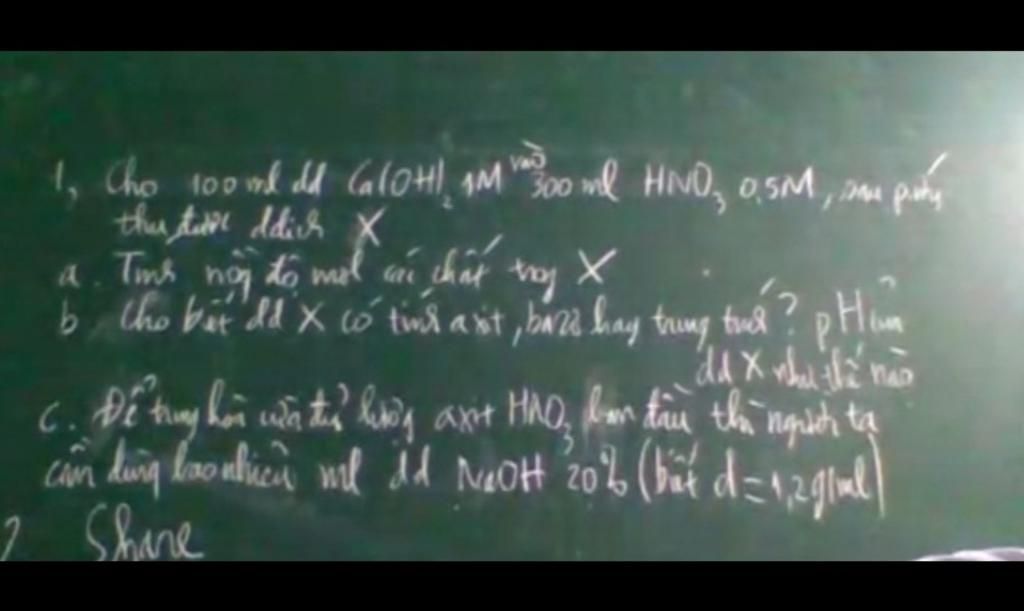 1, Cho 100 ml dd Ca(OH)₂ 1M vào 300 ml HNO₃ 0,5M, sau pứng
thu được ddịch X
a. Tính nồng độ mol các chất trong X
b. Cho biết dd X có tính axit, bazơ hay trung tính? pH của
dd X như thế nào
c. Để trung hòa vừa đủ lượng axit HNO₃ ban đầu thì người ta
cần dùng bao nhiêu ml dd NaOH 20% (biết d = 1,2 g/ml)
2 Share